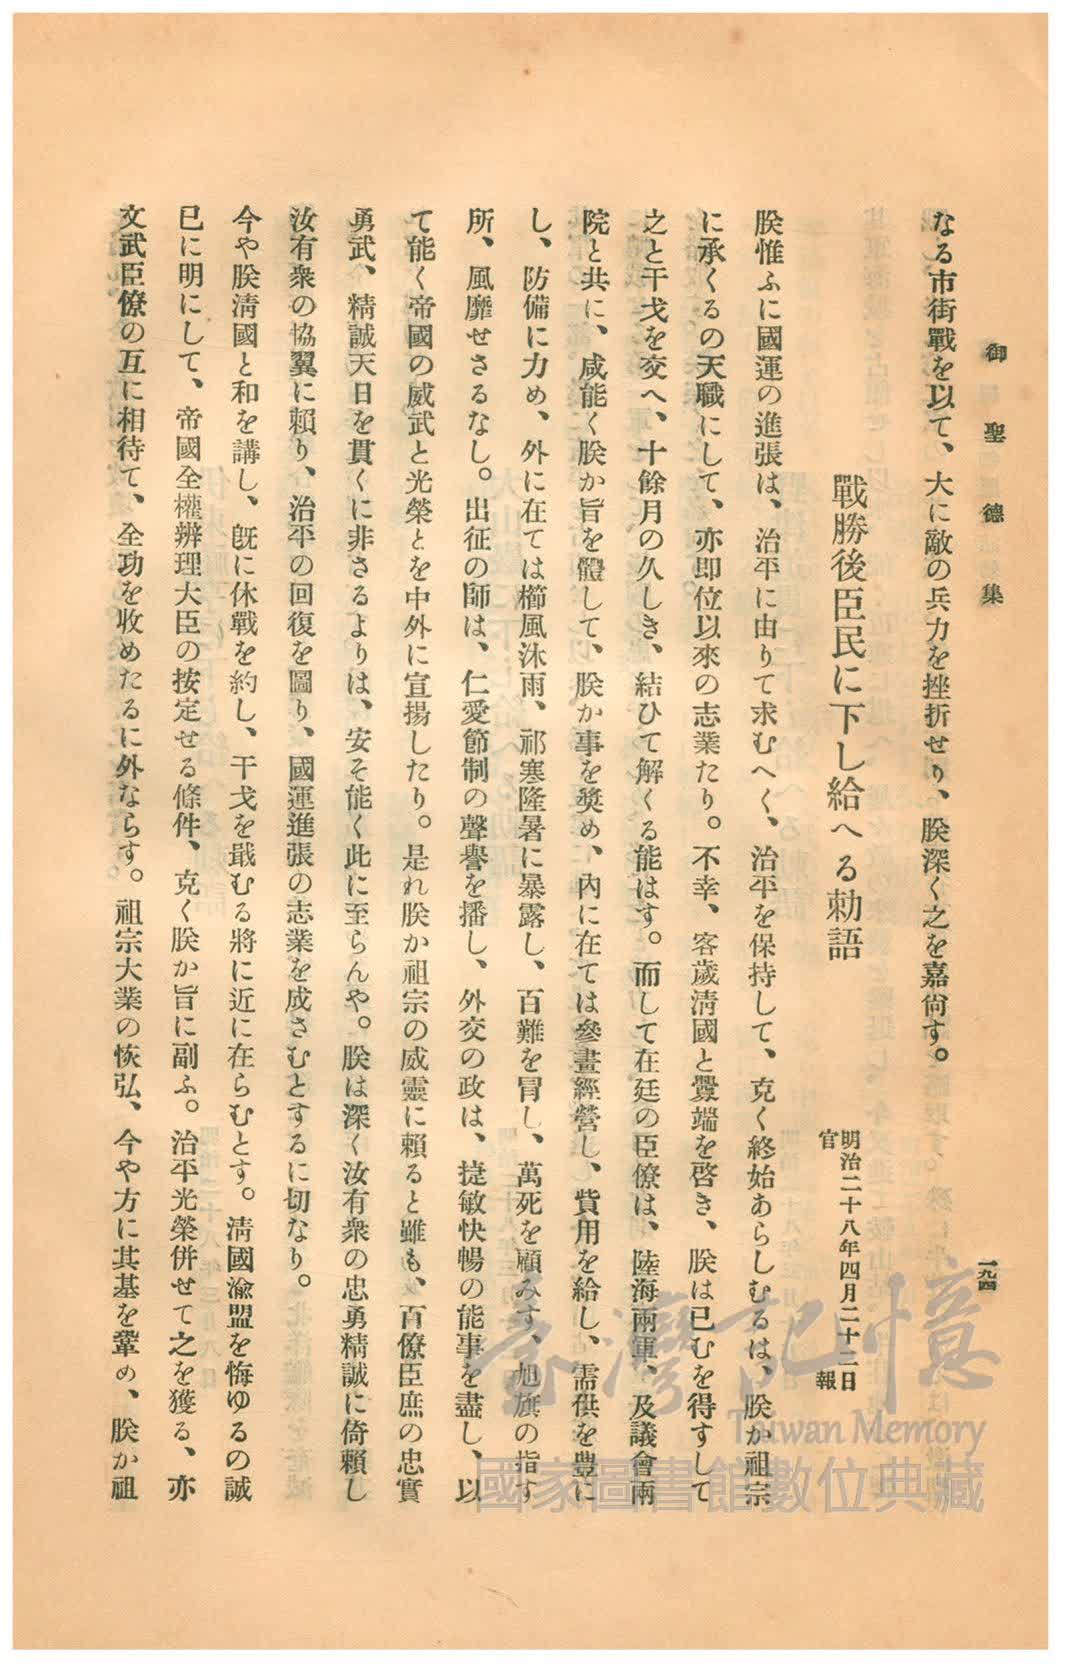 御聖德集
一九四
なる市街戰を以て、大に敵の兵力を挫折せり、朕深く之を嘉尙す。
戰勝後臣民に下し給へる勅語
明治二十八年四月二十二日
官報
朕惟ふに國運の進張は、治平に由りて求むへく、治平を保持して、克く終始あらしむるは、朕か祖宗
に承くるの天職にして、亦即位以來の志業たり。不幸、客歲淸國と釁端を啓き、朕は已むを得すして
之と干戈を交へ、十餘月の久しき、結ひて解くる能はす。而して在廷の臣僚は、陸海兩軍、及議會兩
院と共に、咸能く朕か旨を體して、朕か事を奬め、內に在ては參畫經營し、貲用を給し、需供を豊に
し、防備に力め、外に在ては櫛風沐雨、祁寒隆暑に暴露し、百難を冒し、萬死を顧みす、旭旗の指す
所、風靡せさるなし。出征の師は、仁愛節制の聲譽を播し、外交の政は、捷敏快暢の能事を盡し、以
て能く帝國の威武と光榮とを中外に宣揚したり。是れ朕か祖宗の威靈に賴ると雖も、百僚臣庶の忠實
勇武、精誠天日を貫くに非さるよりは、安そ能く此に至らんや。朕は深く汝有衆の忠勇精誠に倚賴し
汝有衆の協翼に賴り、治平の回復を圖り、國運進張の志業を成さむとするに切なり。
今や朕淸國と和を講し、旣に休戰を約し、干戈を戢むる將に近に在らむとす。淸國渝盟を悔ゆるの誠
已に明にして、帝國全權辨理大臣の按定せる條件、克く朕か旨に副ふ。治平光榮併せて之を獲る、亦
文武臣僚の互に相待て、全功を收めたるに外ならす。祖宗大業の恢弘、今や方に其基を鞏め、朕か祖
臺灣記憶
Taiwan Memory
國家圖書館數位典藏